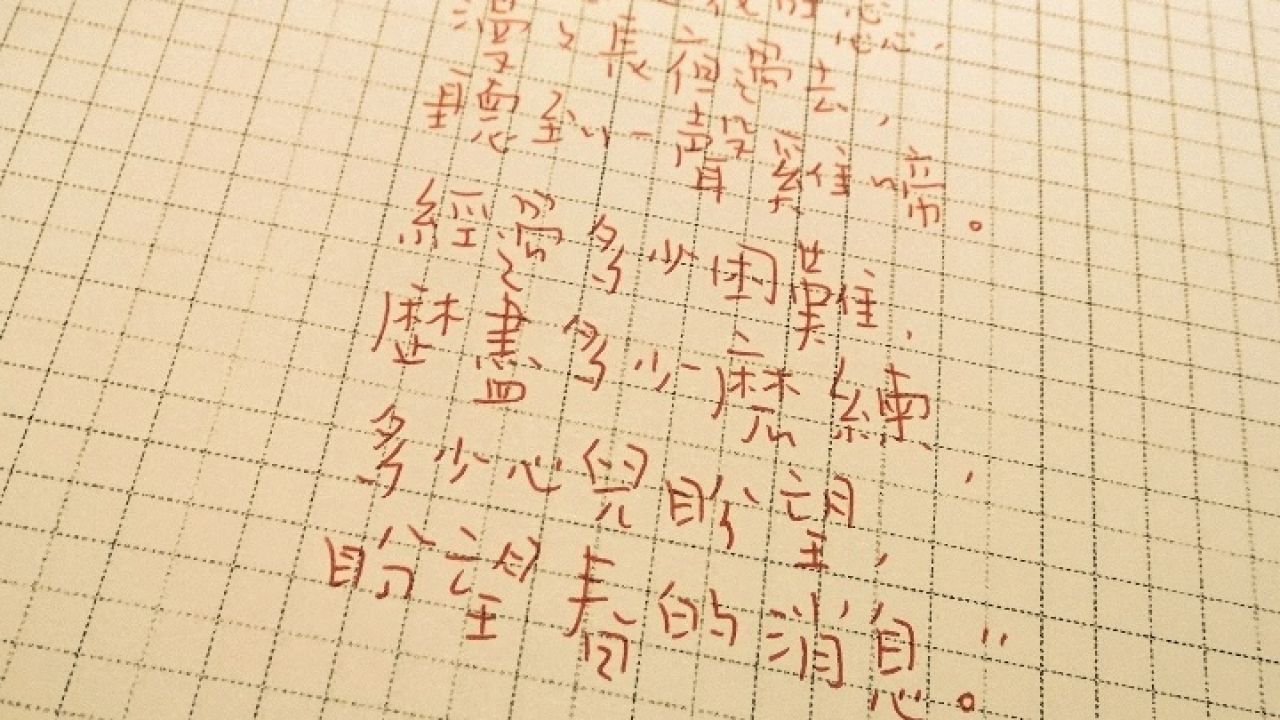 漫〻長夜過去，
聽到一聲雞啼。
經過多少困難，
歷盡多少磨練，
多少心兒盼望，
盼望春的消息。"